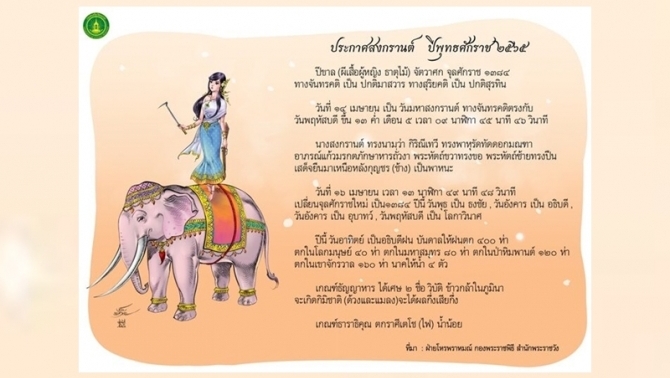 ประกาศสงกรานต์ ปีพุทธศักราช ๒๕๖๕
ปีขาล (ผีเสื้อผู้หญิง ธาตุไม้) จัตวาศก จุลศักราช ๑๓๘๔
ทางจันทรคติ เป็น ปกติมาสวาร ทางสุริยคติ เป็น ปกติสุรทิน
วันที่ ๑๔ เมษายน เป็น วันมหาสงกรานต์ ทางจันทรคติตรงกับ
วันพฤหัสบดี ขึ้น ๑๓ ค่ำ เดือน ๕ เวลา ๐๙ นาฬิกา ๔๕ นาที ๔๖ วินาที
นางสงกรานต์ ทรงนามว่า กิริณีเทวี ทรงพาหุรัดทัดดอกมณฑา
อาภรณ์แก้วมรกตภักษาหารถั่วงา พระหัตถ์ขวาทรงขอ พระหัตถ์ซ้ายทรงปืน
เสด็จยืนมาเหนือหลังกุญชร (ช้าง) เป็นพาหนะ
วันที่ ๑๖ เมษายน เวลา ๑๓ นาฬิกา ๔๙ นาที ๔๘ วินาที
เปลี่ยนจุลศักราชใหม่ เป็น๑๓๘๔ ปีนี้ วันพุธ เป็น ธงชัย , วันอังคาร เป็น อธิบดี ,
วันอังคาร เป็น อุบาทว์ , วันพฤหัสบดี เป็น โลกาวินาศ
ปีนี้ วันอาทิตย์ เป็นอธิบดีฝน บันดาลให้ฝนตก ๔๐๐ ห่า
ตกในโลกมนุษย์ ๔๐ ห่า ตกในมหาสมุทร ๘๐ ห่า ตกในป่าหิมพานต์ ๑๒๐ ห่า
ตกในเขาจักรวาล ๑๖๐ ห่า นาคให้น้ำ ๔ ตัว
เกณฑ์ธัญญาหาร ได้เศษ ๒ ชื่อ วิบัติ ข้าวกล้าในภูมินา
จะเกิดกิมิชาติ (ด้วงและแมลง)จะได้ผลกึ่งเสียกึ่ง
เกณฑ์ธาราธิคุณ ตกราศีเตโช (ไฟ) น้ำน้อย
ที่มา : ฝ่ายโหรพราหมณ์ กองพระราชพิธี สำนักพระราชวัง